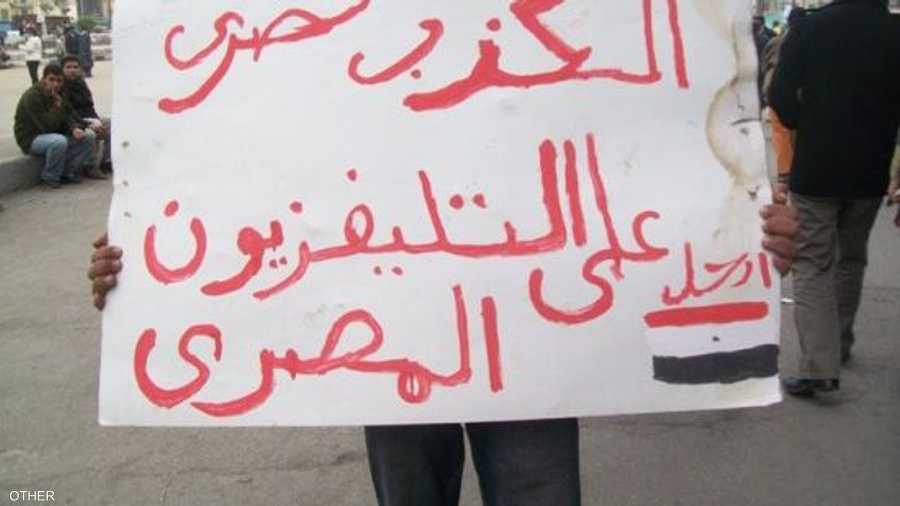 الكذب حصرى
على التليفزيون
المصرى
ارحل
OTHER